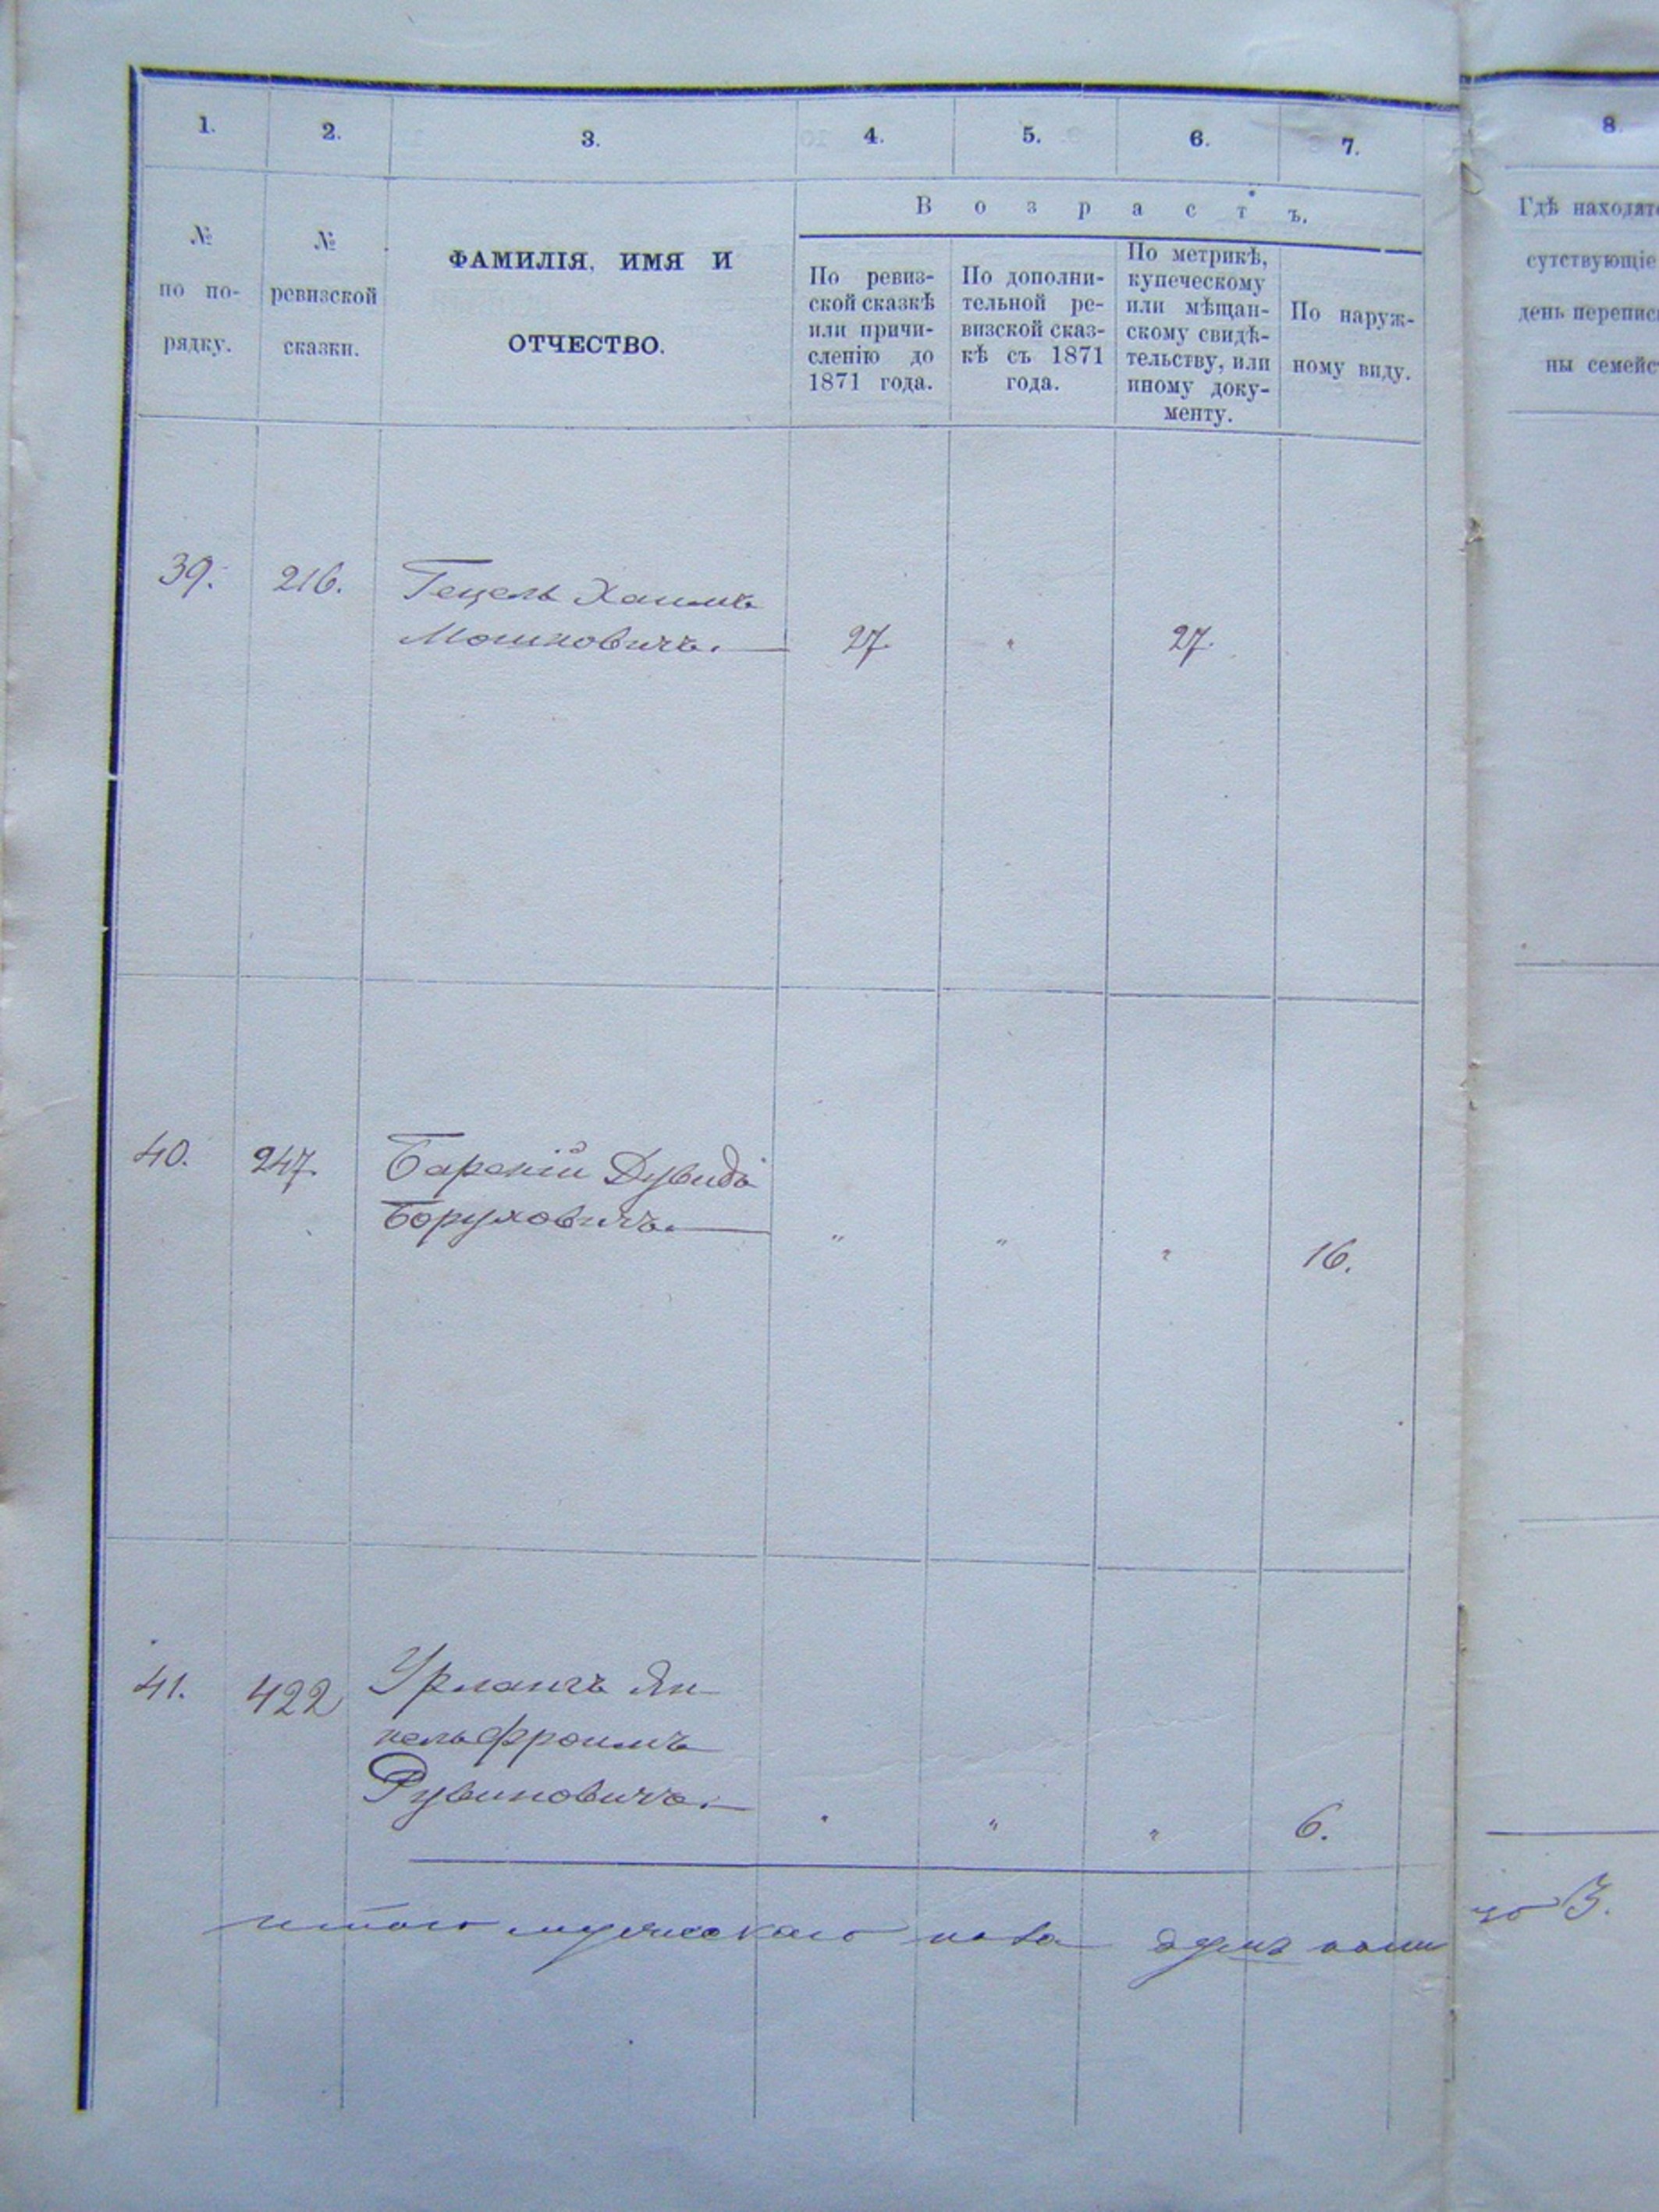 1. 2. 3. 4. 5. 6. 7. 8.
В о з р а с т ъ.
№
по по-
рядку.
№
ревизской
сказки.
ФАМИЛІЯ, ИМЯ И
ОТЧЕСТВО.
По ревиз-
ской сказкѣ
или причи-
сленію до
1871 года.
По дополни-
тельной ре-
визской сказ-
кѣ съ 1871
года.
По метрикѣ,
купеческому
или мѣщан-
скому свидѣ-
тельству, или
иному доку-
менту.
По наруж-
ному виду.
Гдѣ находят
сутствующіе
день перепис
ны семейс
39. 216. Гецель Хаимъ
Мошковичъ. 27. " 27.
40. 247. Барскій Дувидъ
Боруховичъ. " " " 16.
41. 422 Урлангъ Ян
кель Фроимъ
Рувиновичъ. " " " 6.
итого мужескаго пола душъ 3.